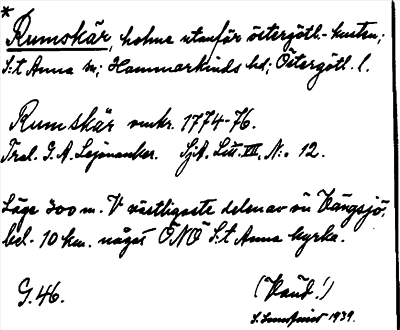 *
Rumskär, holme utanför östergötl.- kusten;
S:t Anna sn; Hammarkinds hd; Östergötl. l.
Rumskär omkr. 1774-76.
Tral. G. A. Lejonancker. SjA, Litt. VII, N:o 12.
Läge 300 m. V västligaste delen av ön Kängsjö,
bel. 10 km. något ÖNÖ S:t Anna kyrka.
G. 46.
(Kand!)
1939.